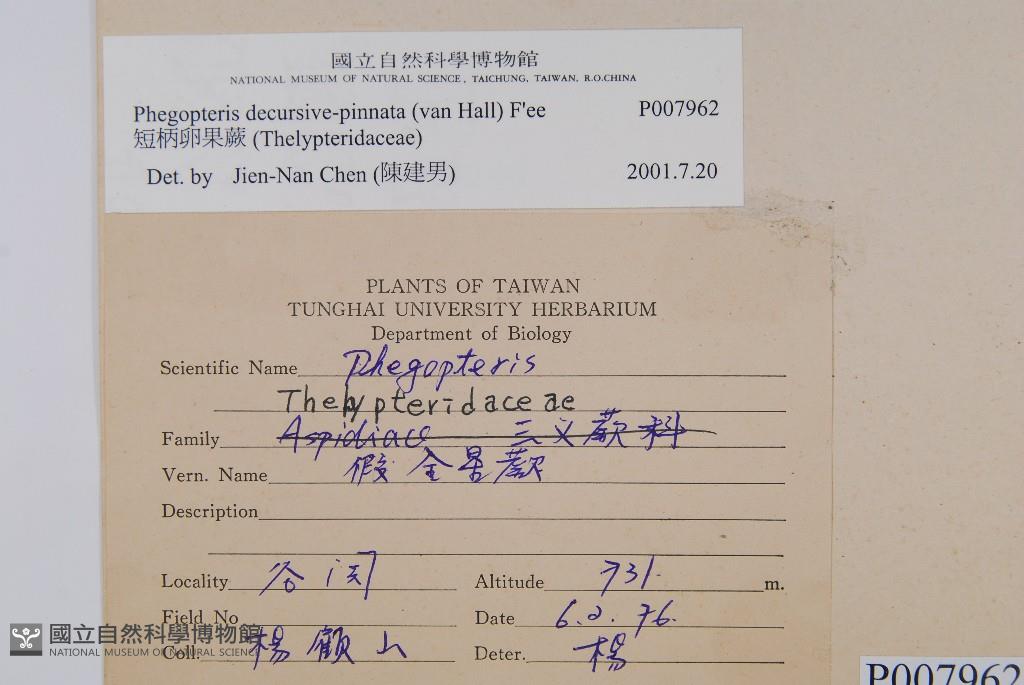 國立自然科學博物館
NATIONAL MUSEUM OF NATURAL SCIENCE, TAICHUNG, TAIWAN, R.O.CHINA
Phegopteris decursive-pinnata (van Hall) F'ee P007962
短柄卵果蕨 (Thelypteridaceae)
Det. by Jien-Nan Chen (陳建男) 2001.7.20
PLANTS OF TAIWAN
TUNGHAI UNIVERSITY HERBARIUM
Department of Biology
Scientific Name Phegopteris
Thelypteridaceae
Family Aspidiac 三叉蕨科
Vern. Name 假金星蕨
Description
Locality 谷関 Altitude 731. m.
Field No Date 6.2.76.
Coll. 楊顧山 Deter. 楊
國立自然科學博物館
NATIONAL MUSEUM OF NATURAL SCIENCE
P007962